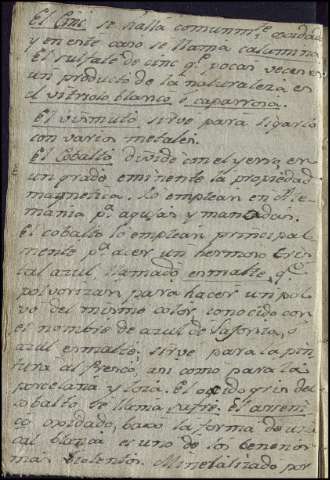 El Cinc se halla comunmte. oxidado
y en este caso se llama calamina
El sulfate de cinc qe. pocas veces es
un producto de la naturaleza es
el vitriolo blanco o caparrosa.
El vismuto sirve para ligarlo
con varios metales.
El Cobalto divide con el yerro en
un grado eminente la propiedad
magnetica. Lo emplean en Ale-
mania pa. agujas y
El cobalto lo emplean principal-
mente pa. acer un hermoso cris-
tal azul llamado esmalte, qe.
polvorizan para hacer un pol-
vo del mismo color conocido con
el nombre de azul de
azul esmalto, sirve para la pin-
tura al fresco, asi como para la
porcelana y loza. El oxido gris del
cobalto se llama safre. El arseni-
co oxidado, baxo la forma de una
cal blanca es uno de los benenos
mas violentos. Mineralizado por